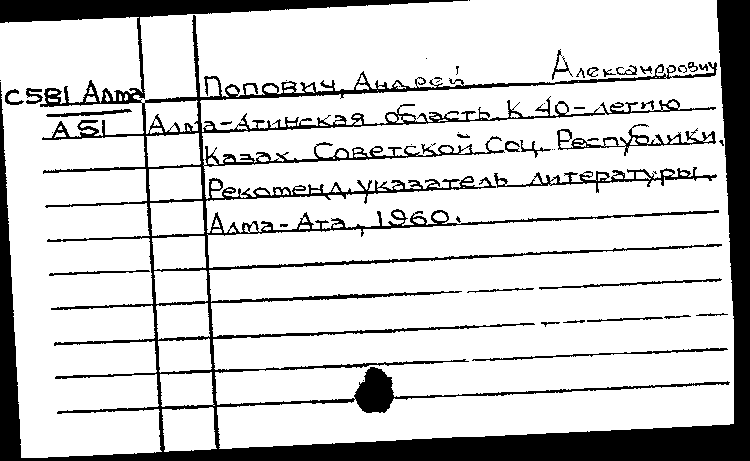 С581 Алма Попович, Андрей Александрович
А51 Алма-Атинская область. К 40-летию
Казах. Советской Соц. Республики.
Рекоменд. указатель литературы.
Алма-Ата, 1960.